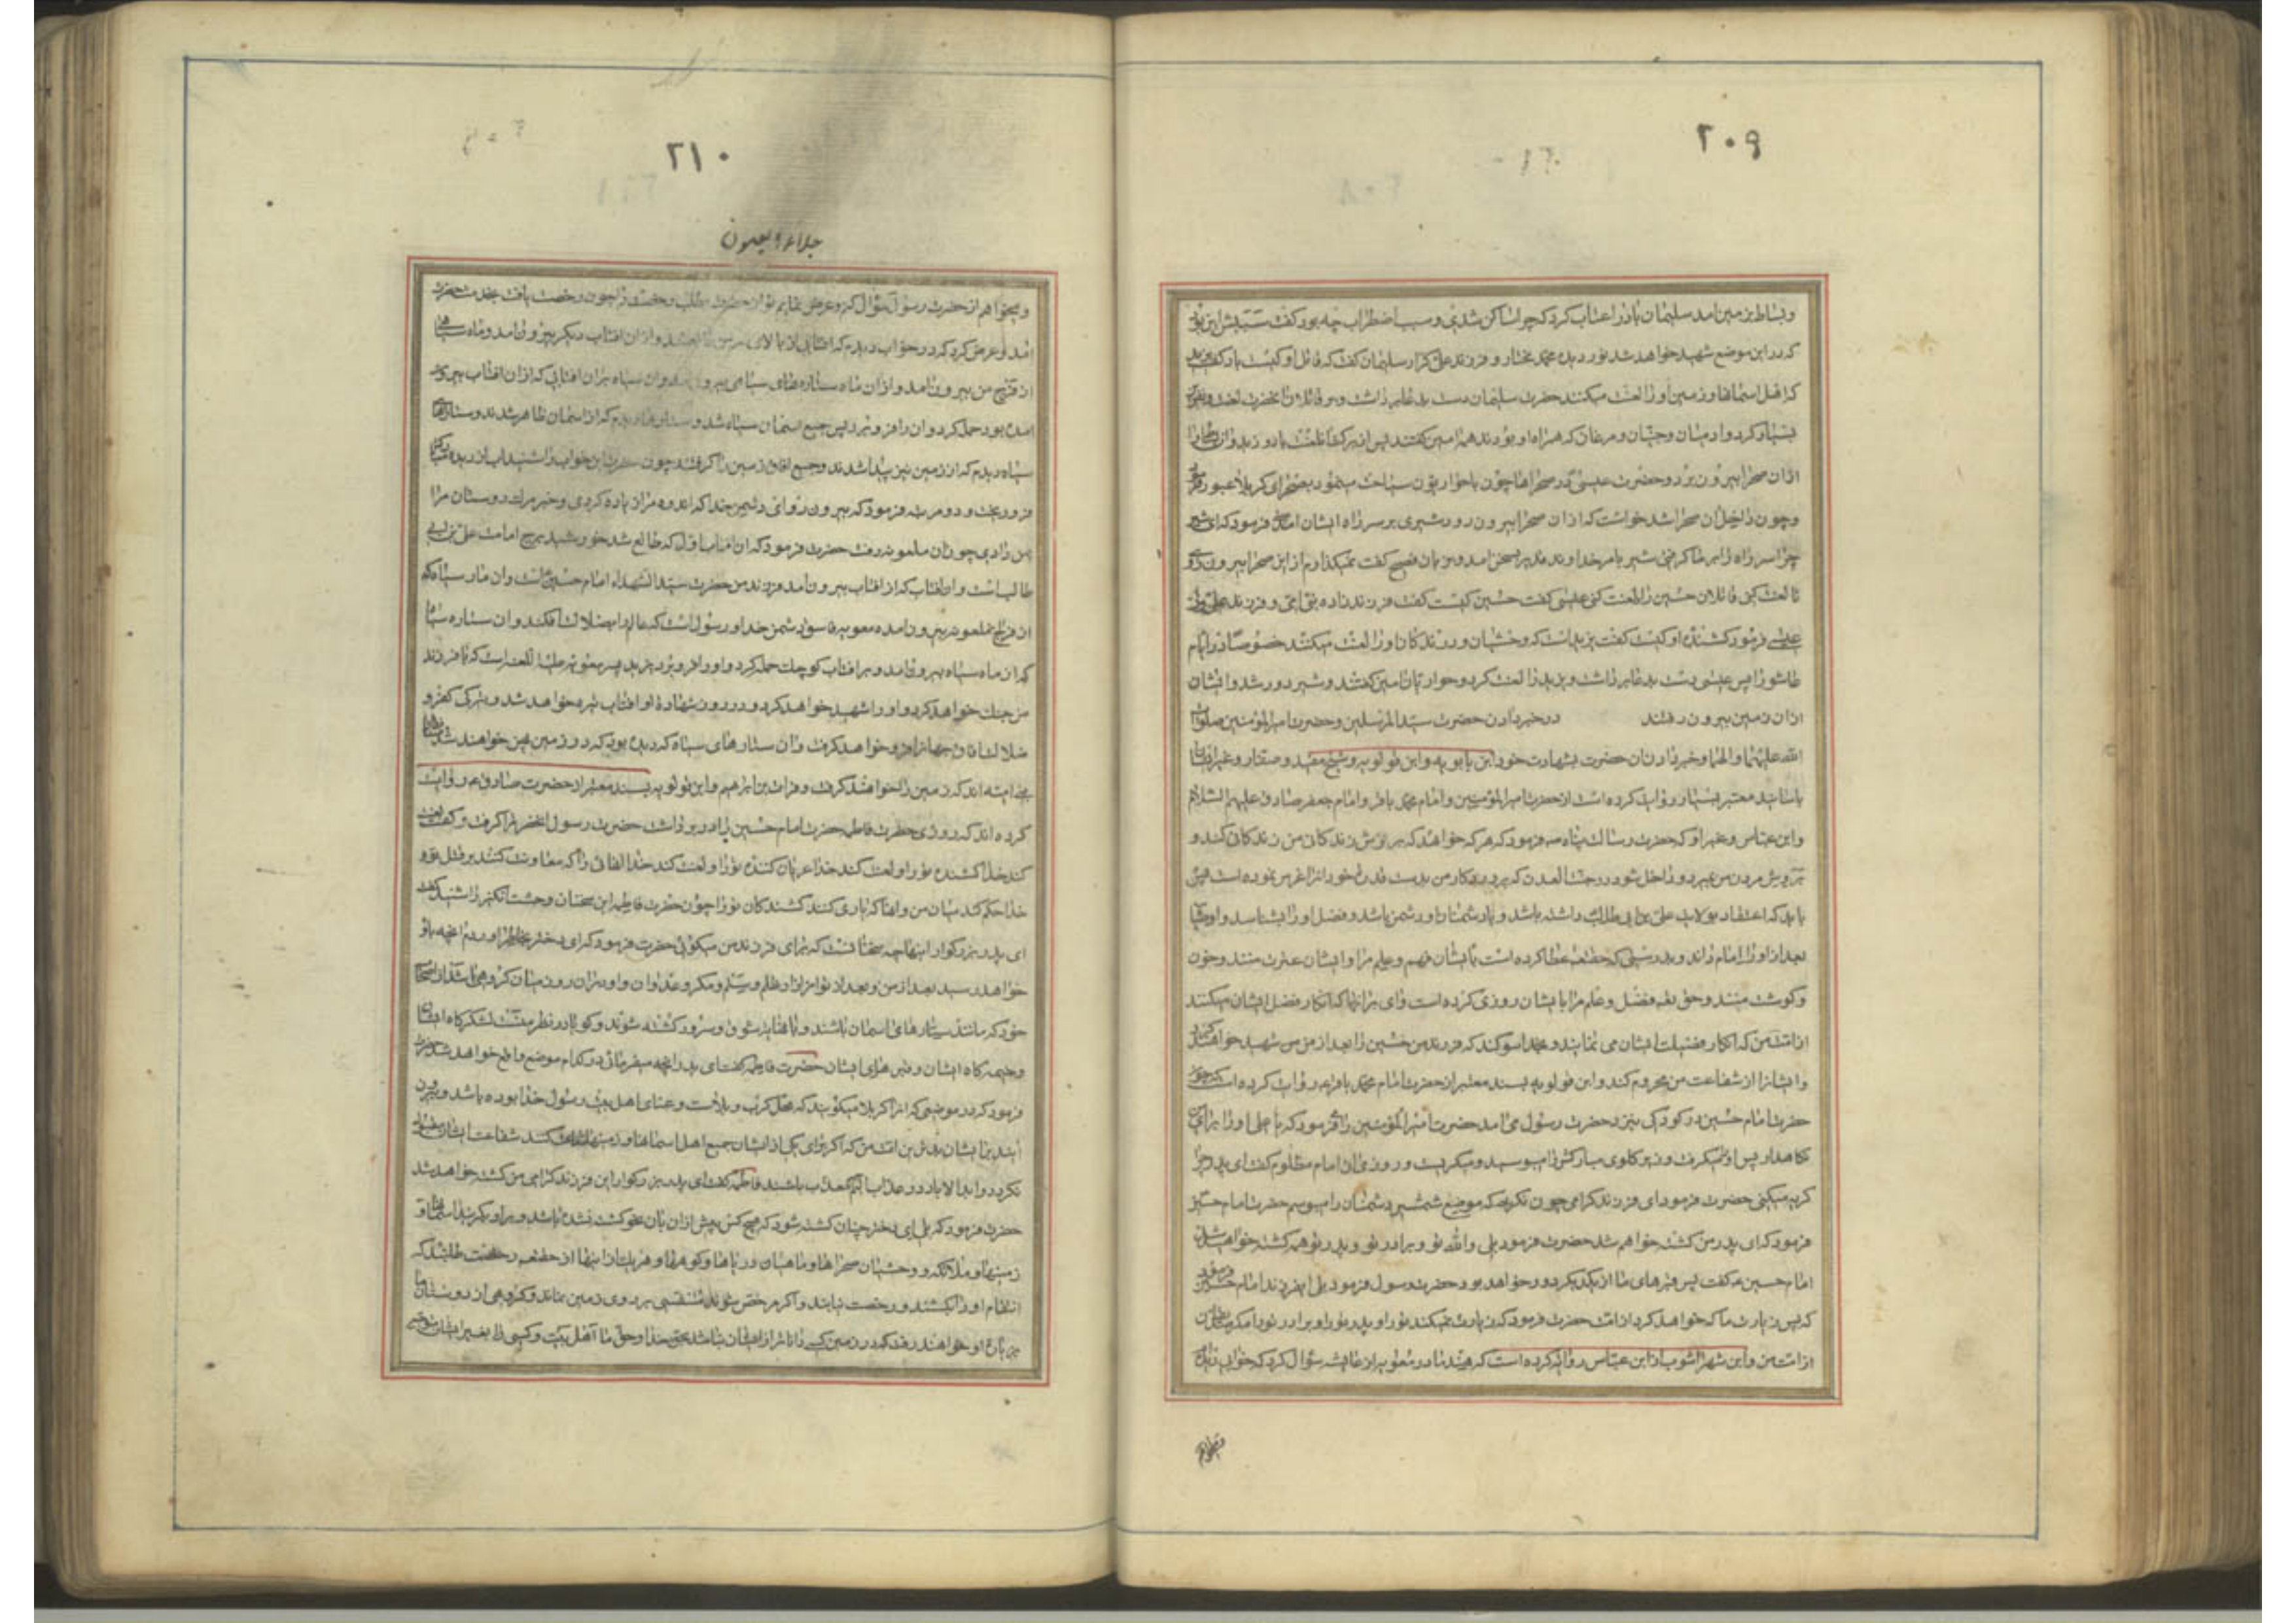 ۲۰۹
و بساط بر زمین امد سلیمان باد را عتاب کرد که چرا ساکن شدی و سبب اضطراب چه بود گفت سببش این بود
که در این موضع شهید خواهد شد نور دیده محمد مختار و فرزند علی کرار سلیمان گفت که قاتل او کیست باد گفت یزید
که اهل اسمانها و زمین او را لعنت میکنند حضرت سلیمان دست بدعا برداشت و بر قاتلان انحضرت لعنت و نفرین
بسیار کرد و ادمیان و جنیان و مرغان که همراه او بودند همه امین گفتند پس از برکت ان لعنت باد وزید و ان بساط را
از ان صحرا بیرون برد و حضرت عیسی در صحراها چون با حواریون سیاحت مینمود بصحرای کربلا عبور
و چون داخل ان صحرا شد خواست که از ان صحرا بیرون رود شیری بر سر راه ایشان امد فرمود که ای شیر
چرا سر راه را بر ما گرفتی شیر بامر خداوند قدیر بسخن امد و بزبان فصیح گفت نمیگذارم از این صحرا بیرون روی
تا لعنت کنی قاتلان حسین را لعنت کنی عیسی گفت حسین کیست گفت فرزندزاده نبی امی و فرزند علی ولی
عیسی فرمود کشنده او کیست گفت یزید است که وحشیان و درندگان او را لعنت میکنند خصوصا در ایام
عاشورا پس عیسی دست بدعا برداشت و یزید را لعنت کرد و حواریان امین گفتند و شیر دور شد و ایشان
از ان زمین بیرون رفتند در خبر دادن حضرت سید المرسلین و حضرت امیر المؤمنین صلوات
الله علیهما و الهما و خبر دادن ان حضرت بشهادت خود ابن بابویه و ابن قولویه و شیخ مفید و صفار و غیر ایشان
باسانید معتبر بسیار روایت کرده است از حضرت امیر المؤمنین و امام محمد باقر و امام جعفر صادق علیهم السلام
و ابن عباس و غیر او که حضرت رسالت پناه ص فرمود که هر که خواهد که بر روش زندگانی من زندگانی کند و
بروش مردن من بمیرد و داخل شود در جنت العدن که پروردگار من بدست قدرت خود انرا غرس نموده است پس
باید که اعتقاد بولایت علی بن ابی طالب داشته باشد و با دشمنان او دشمن باشد و فضل او را بشناسد و اوصیا
بعد از او را امام داند و بدرستی که حقتعالی عطا کرده است بایشان فهم و علم مرا و ایشان عترت منند و خون
و گوشت منند و حق تعالی فضل و علم مرا بایشان روزی کرده است وای بر انها که انکار فضل ایشان میکنند
از امت من که انکار فضیلت ایشان می نمایند و بخدا سوگند که فرزند من حسین را بعد از من شهید خواهند کرد
و ایشانرا از شفاعت من محروم کند و ابن قولویه بسند معتبر از حضرت امام محمد باقر ع روایت کرده است که چون
حضرت امام حسین در کودکی بنزد حضرت رسول می امد حضرت امیر المؤمنین را میفرمود که یا علی او را برای من
نگاهدار پس او را میگرفت و زیر گلوی مبارکش را میبوسید و میگریست و روزی ان امام مظلوم گفت ای پدر چرا
گریه میکنی حضرت فرمود ای فرزند گرامی چون نگریم که موضع شمشیر دشمنان را میبوسم حضرت امام حسین
فرمود که ای پدر من کشته خواهم شد حضرت فرمود بلی والله تو و برادر تو و پدر تو همه کشته خواهید شد
امام حسین ع گفت پس قبرهای ما از یکدیگر دور خواهد بود حضرت رسول فرمود بلی ای فرزند امام حسین فرمود
که پس زیارت ما که خواهد کرد از امت حضرت فرمود که زیارت نمیکند تو را و پدر تو را و برادر تو را مگر صدیقان
از امت من و ابن شهراشوب از ابن عباس روایت کرده است که هند مادر معویه از عایشه سؤال کرد که خوابی دیده
و میخواهم
۲۱۰
جلاء العیون
و میخواهم از حضرت رسول سؤال کنم و عرض نمایم تو از حضرت بطلب رخصت را چون رخصت یافت بخدمت حضرت
امد و عرض کرد که در خواب دیدم که افتابی از بالای سر من طالع شد و از ان افتاب دیگر بیرون امد و ماه سیاهی
از فرج من بیرون امد و از ان ماه ستاره های سیاهی بیرون امد و ان سیاه بران افتابی که از ان افتاب بیرون
امده بود حمله کرد و ان را فرو برد پس جمیع اسمان سیاه شد و ستاره ها دیدم که از اسمان ظاهر شدند و ستارهای
سیاه دیدم که از زمین نیز پیدا شدند و جمیع افاق زمین را گرفتند چون حضرت این خواب را شنید اب از دیده مبارک
فرو ریخت و دو مرتبه فرمود که بیرون رو ای دشمن خدا که اندوه مرا زیاده کردی و خبر مرگ دوستان مرا
بمن دادی چون ان ملعونه رفت حضرت فرمود که ان افتاب اول که طالع شد خورشید برج امامت علی بن ابی
طالب است و ان افتاب که از افتاب بیرون امد فرزند من حضرت سید الشهداء امام حسین است و ان ماه سیاه که
از فرج ملعونه بیرون امده معویه فاسق دشمن خدا و رسول است که عالم را بضلالت افکند و ان ستاره سیاه
که از ماه سیاه بیرون امد و بر افتاب کوچک حمله کرد و او را فرو برد یزید پسر معویه علیها اللعنه است که با فرزند
من جنگ خواهد کرد و او را شهید خواهد کرد و در روز شهادة او افتاب تیره خواهد شد و تیرگی کفر و
ضلالت افاق جهانرا فرو خواهد گرفت و ان ستارهای سیاه که دیده بود که در زمین پهن خواهند شد
بنی امیه اند که زمین را خواهند گرفت و فرات بن ابراهیم و ابن قولویه بسند معتبر از حضرت صادق ع روایت
کرده اند که روزی حضرت فاطمه حضرت امام حسین را در بر داشت حضرت رسول انحضرترا گرفت و گفت لعنت
کند خدا کشنده تو را و لعنت کند خدا عریان کننده تو را و لعنت کند خدا انهائی را که معاونت کنند بر قتل تو و
خدا حکم کند میان من و انها که یاری کنند کشندگان تو را چون حضرت فاطمه این سخنان وحشت انگیز را شنید گفت
ای پدر بزرگوار اینها چه سخنانست که برای فرزند من میگوئی حضرت فرمود که ای دختر بخاطر اوردم انچه باو
خواهد رسید بعد از من و بعد از تو از ازار و ظلم و ستم و مکر و عدوان و او در ان روز میان گروهی باشد از اصحاب
خود که مانند ستارهای اسمان باشند و با نهایت شوق و سرور کشته شوند و گویا در نظر منست لشکرگاه ایشان
و خیمه گاه ایشان و قبرهای ایشان حضرت فاطمه گفت ای پدر انچه میفرمائی در کدام موضع واقع خواهد شد حضرت
فرمود که در موضعی که انرا کربلا میگویند که محل کرب و بلاست و عنای اهل بیت رسول خدا بوده باشد و بیرون
ایند بر ایشان بدترین امت من که اگر برای یکی از ایشان جمیع اهل اسمانها و زمینها شفاعت کنند شفاعت ایشان مقبول
نگردد و ابد الاباد در عذاب الیم معذب باشند فاطمه گفت ای پدر بزرگوار این فرزند گرامی من کشته خواهد شد
حضرت فرمود که بلی ای دختر چنان کشته شود که هیچ کس پیش از ان بان نحو کشته نشده باشد و بر او بگریند اسمانها و
زمینها و ملائکه و وحشیان صحراها و ماهیان دریاها و کوهها و هر یک از اینها از حقتعالی رخصت طلبند که
انتقام او را بکشند و رخصت نیابند و اگر مرخص شوند متنفسی بر روی زمین نماند و گروهی از دوستان ما
بزیارة او خواهند رفت که در زمین کسی داناتر از ایشان نباشد بحق خدا و حق ما اهل بیت و کسی را بغیر ایشان